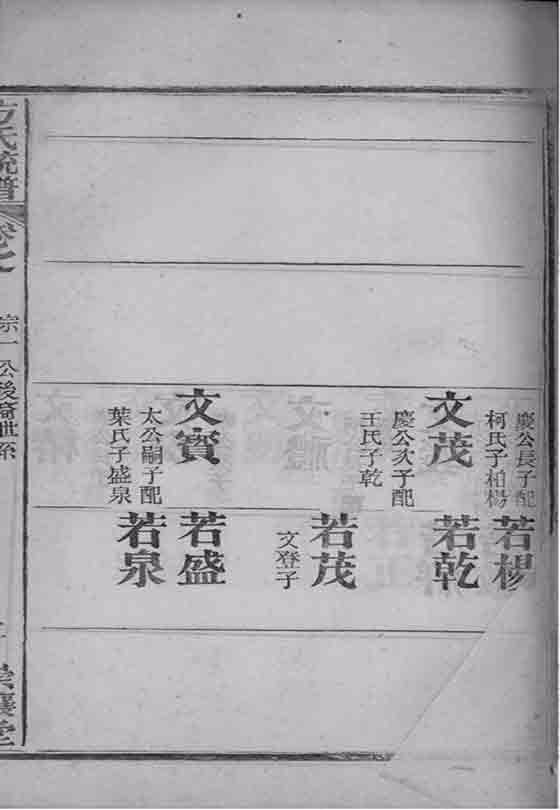 慶公長子配
柯氏子柏楊
文茂
慶公次子配
王氏子乾
文賓
太公嗣子配
葉氏子盛泉
若楊
若乾
若茂
文登子
若盛
若泉
方氏統譜
宗一公後裔世系